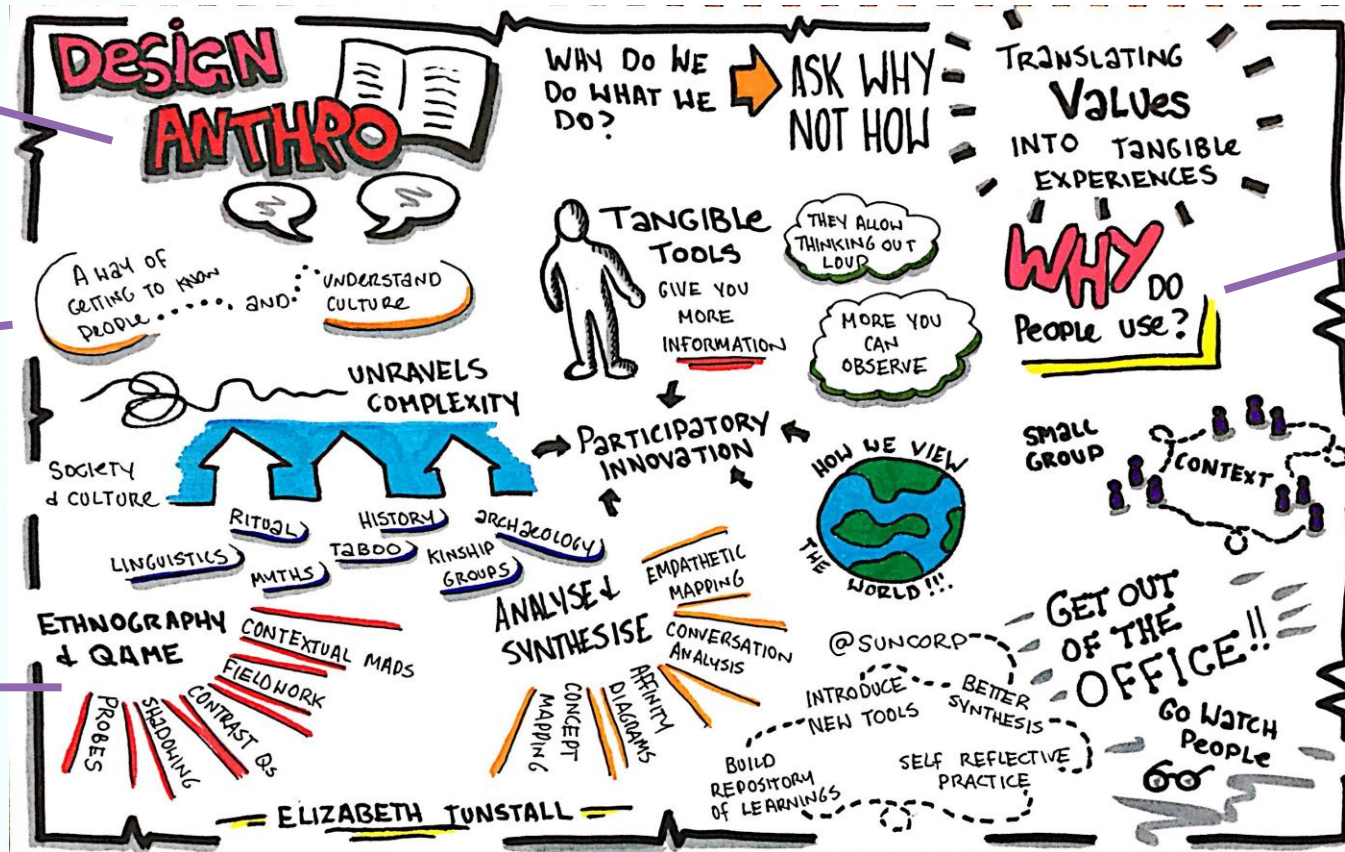 DESIGN
ANTHRO
WHY DO WE
DO WHAT WE
DO?
ASK WHY
NOT HOW
TRANSLATING
VALUES
INTO TANGIBLE
EXPERIENCES
A WAY OF
GETTING TO KNOW
PEOPLE ..... AND
UNDERSTAND
CULTURE
TANGIBLE
TOOLS
GIVE YOU
MORE
INFORMATION
THEY ALLOW
THINKING OUT
LOUD
MORE YOU
CAN
OBSERVE
WHY DO
PEOPLE USE?
UNRAVELS
COMPLEXITY
SOCIETY
& CULTURE
PARTICIPATORY
INNOVATION
HOW WE VIEW
THE WORLD!!!
SMALL
GROUP
CONTEXT
RITUAL
HISTORY
ARCHAEOLOGY
LINGUISTICS
MYTHS
TABOO
KINSHIP
GROUPS
ETHNOGRAPHY
& QAME
CONTEXTUAL MADS
FIELDWORK
CONTRAST QS
SHADOWING
PROBES
ANALYSE &
SYNTHESISE
EMPATHETIC
MAPPING
CONVERSATION
ANALYSIS
AFFINITY
DIAGRAMS
CONCEPT
MAPPING
@SUNCORP
INTRODUCE
NEW TOOLS
BETTER
SYNTHESIS
BUILD
REPOSITORY
OF LEARNINGS
SELF REFLECTIVE
PRACTICE
GET OUT
OF THE
OFFICE!!
GO WATCH
PEOPLE
ELIZABETH TUNSTALL